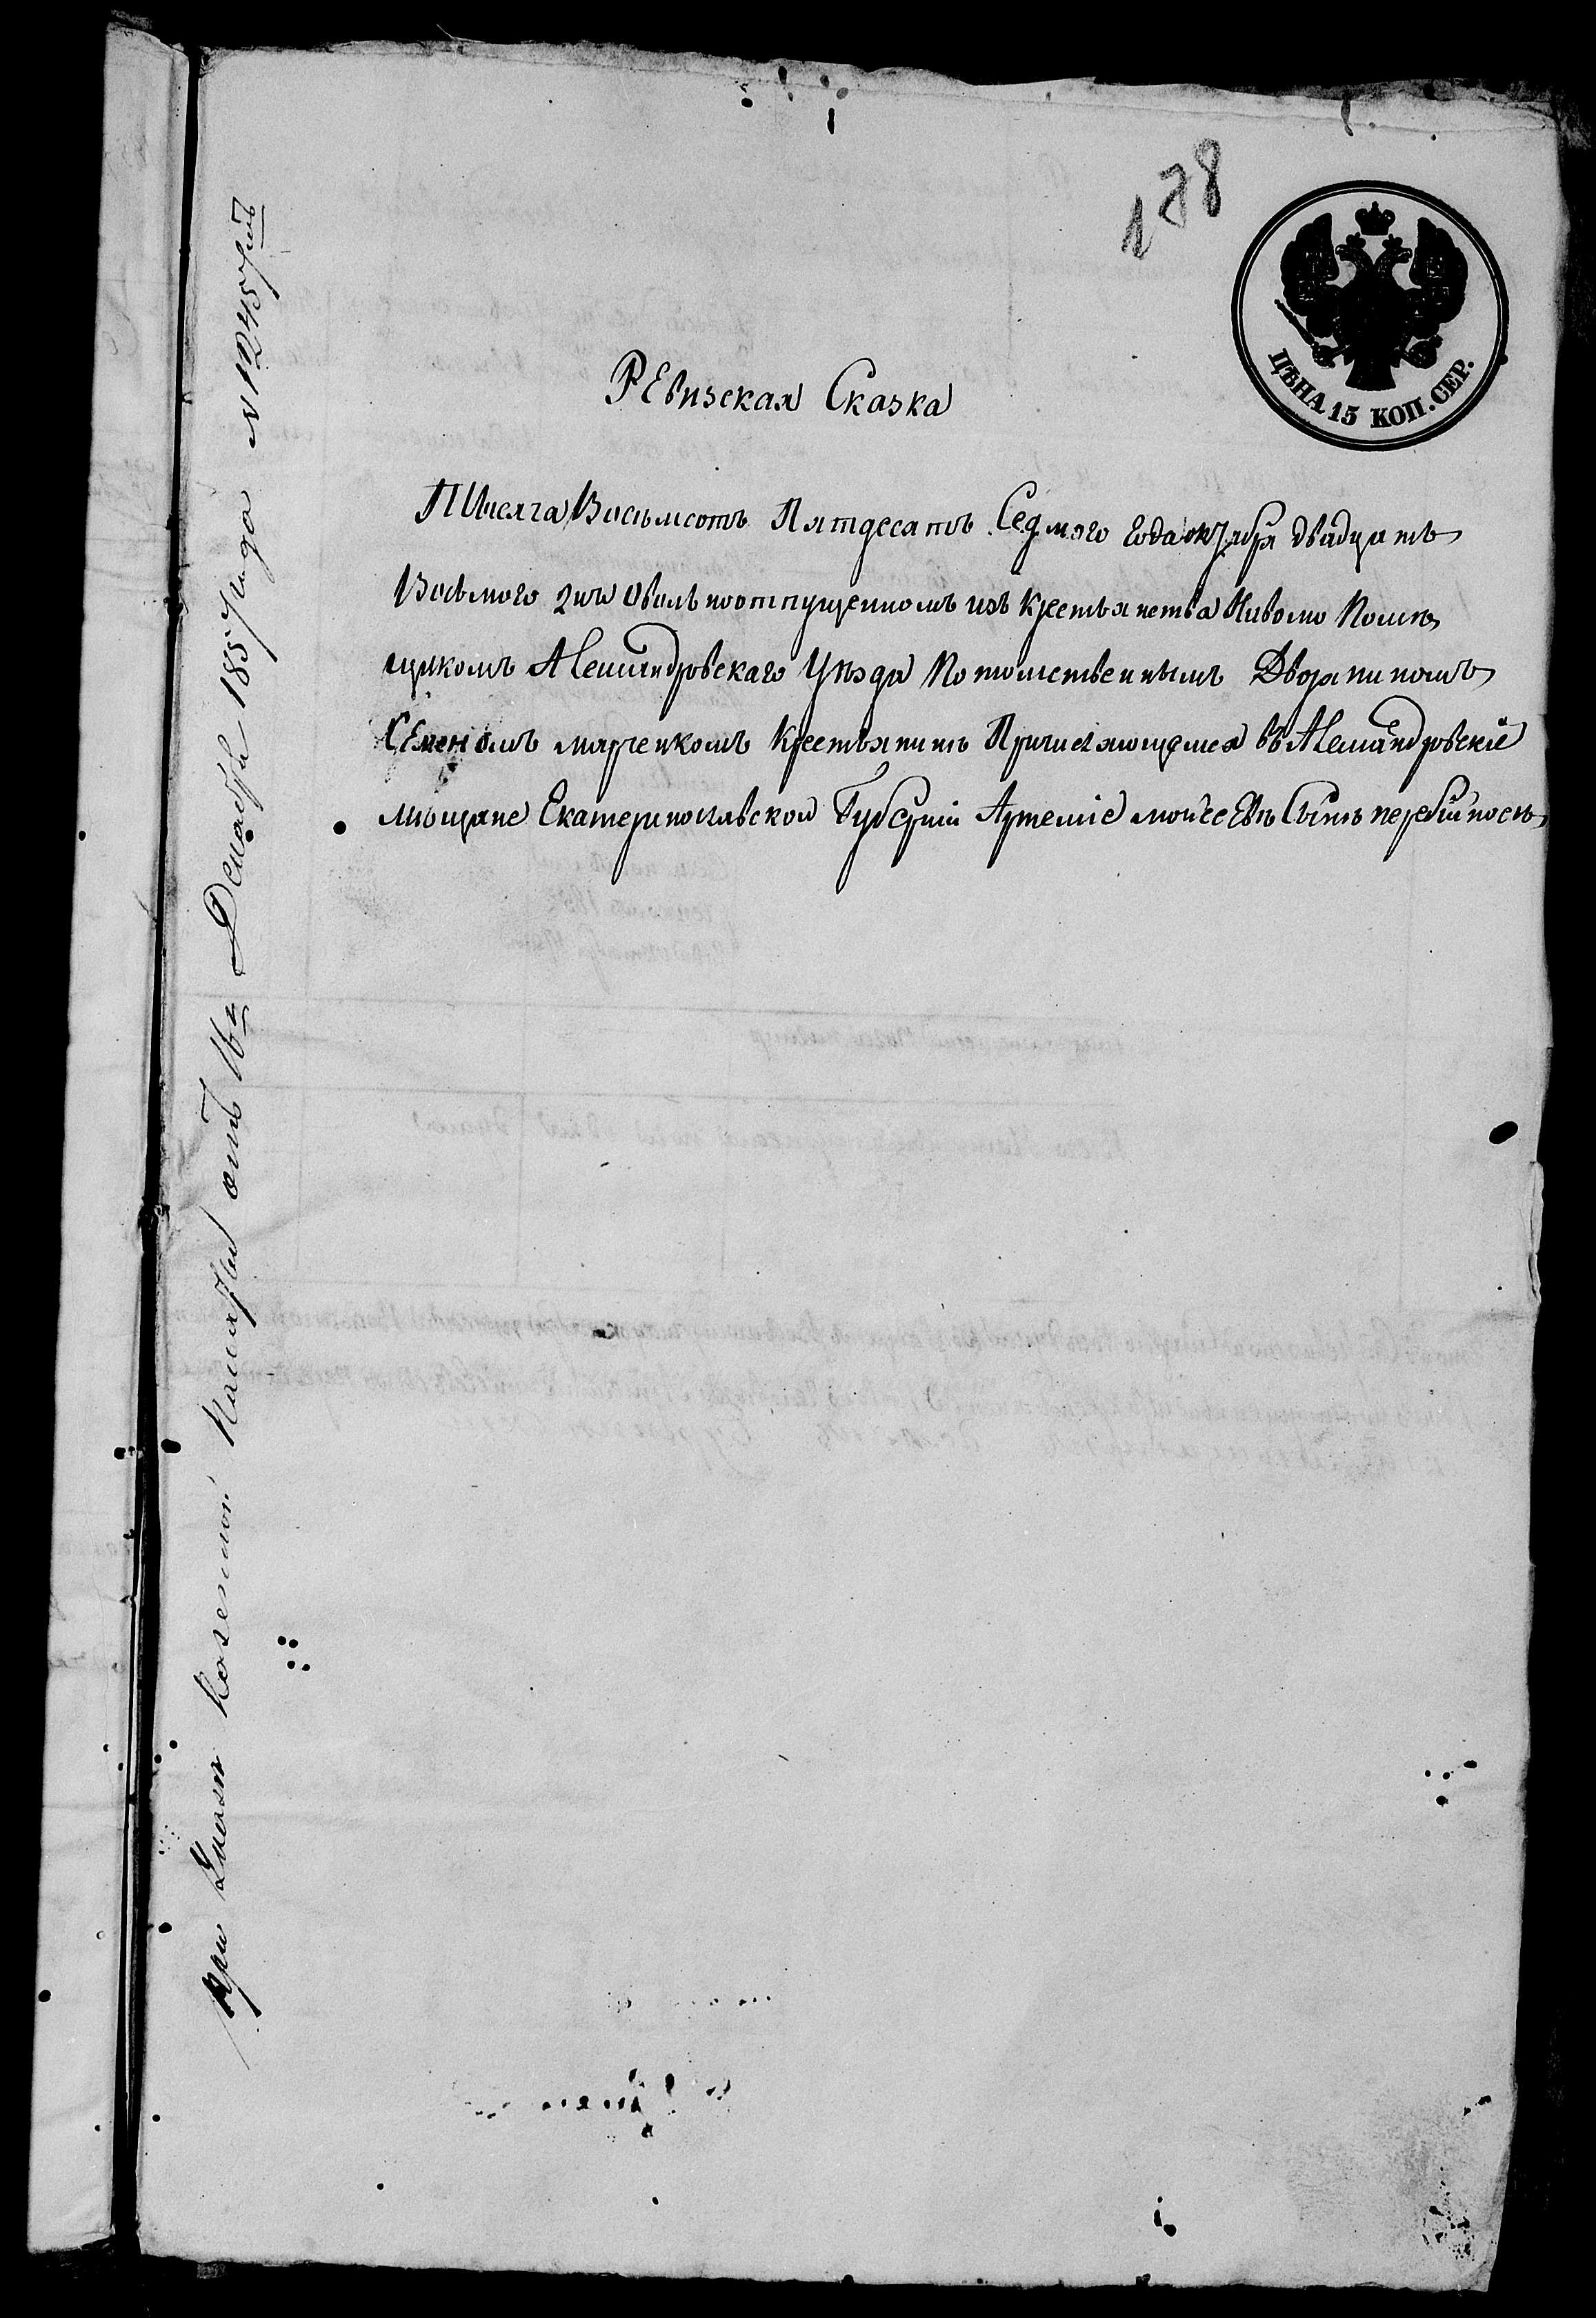 178
ЦѢНА 15 КОП. СЕР.
РЕвизская Сказка
Тисяча Восьмсотъ Пятдесатъ Седмого года октября двадцать
Восьмого дня Овольноотпущенномъ изъ крестьянства Помѣ
щикомъ Алешандровскаго Уѣзда Потомственнымъ Дворяниномъ
СЕменомъ марченкомъ крестьянинъ Причисляющемся въ Алешандровскіе
мѣщане Екатеринославской Губерніи Артемiе мойсеЕвъ Сынъ перебійносъ
При Указѣ Казенной Палаты отъ 16го Декабря 1857 года № 12457